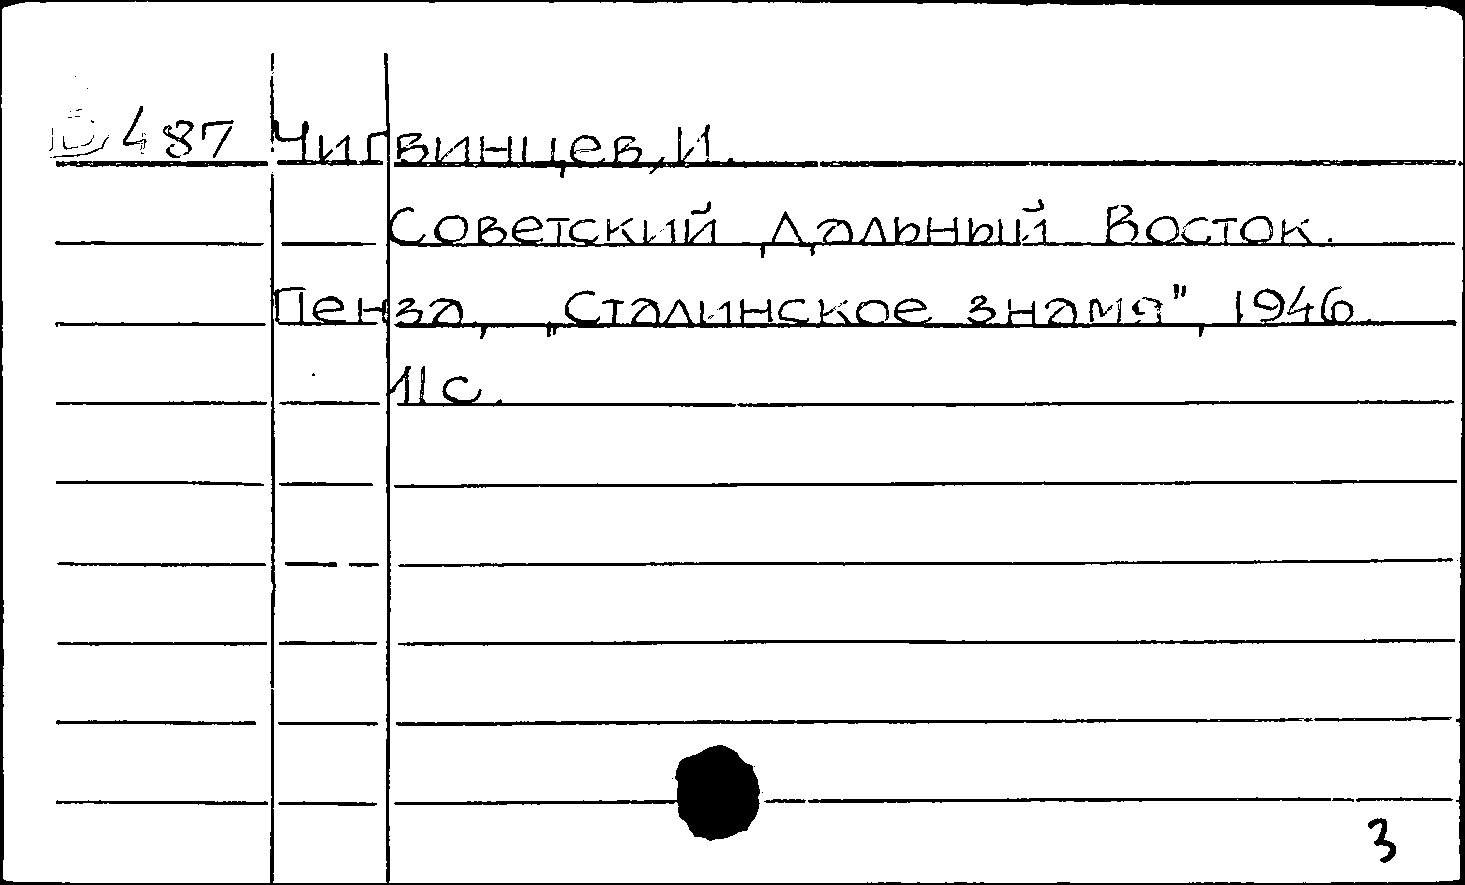 487 Чигвинцев, И.
Советский Дальный Восток.
Пенза, „Сталинское знамя", 1946.
11 с.
3